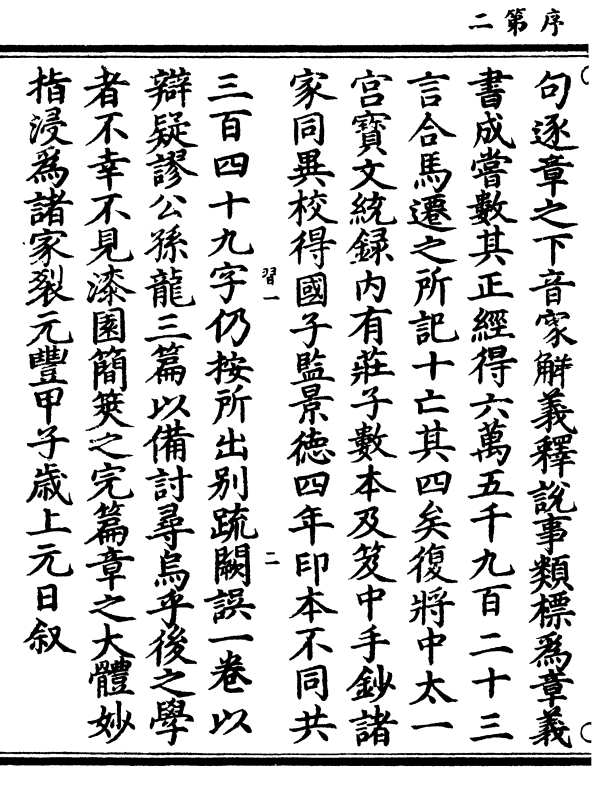 序第二
句逐章之下音家解義釋說事類標爲章義
書成嘗數其正經得六萬五千九百二十三
言合馬遷之所記十亡其四矣復將中太一
宮寶文統録内有莊子數本及笈中手鈔諸
家同異校得國子監景德四年印本不同共
習一
二
三百四十九字仍按所出别疏闕誤一卷以
辯疑謬公孫龍三篇以備討尋烏乎後之學
者不幸不見漆園簡筴之完篇章之大體妙
指浸爲諸家裂元豐甲子歲上元日叙